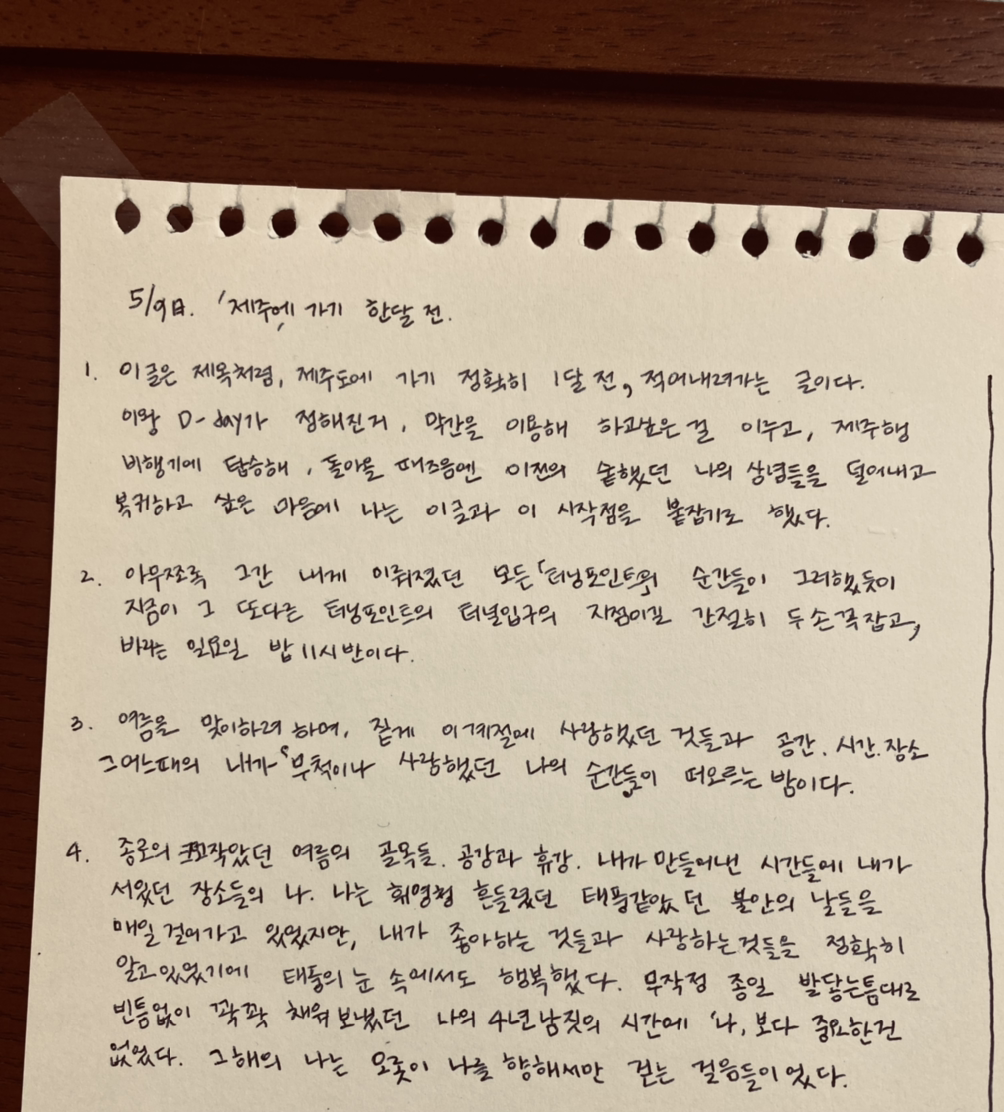 5/9日. '제주에 가기 한달 전.
1. 이글은 제목처럼, 제주도에 가기 정확히 1달 전, 적어내려가는 글이다.
이왕 D-day가 정해진거, 막간을 이용해 하고싶은 걸 이루고, 제주행
비행기에 탑승해, 돌아올 때즈음엔 이전의 숱했던 나의 상념들을 덜어내고
복귀하고 싶은 마음에 나는 이글과 이 시작점을 붙잡기로 했다.
2. 아무쪼록 그간 내게 이뤄졌던 모든「터닝포인트」의 순간들이 그러했듯이
지금이 그 또다른 터닝포인트의 터널입구의 지점이길 간절히 두손꼭잡고,
바라는 일요일 밤 11시반이다.
3. 여름을 맞이하려 하며, 짙게 이계절에 사랑했던 것들과 공간. 시간. 장소
그어느때의 내가 무척이나 사랑했던 나의 순간들이 떠오르는 밤이다.
4. 종로의 꼬작았던 여름의 골목들. 공강과 휴강. 내가 만들어낸 시간들에 내가
서있던 장소들의 나. 나는 휘영청 흔들렸던 태풍같았던 불안의 날들을
매일 걸어가고 있었지만, 내가 좋아하는 것들과 사랑하는것들을 정확히
알고있었기에 태풍의 눈 속에서도 행복했다. 무작정 종일 발닿는틈대로
빈틈없이 꽉꽉 채워보냈던 나의 4년남짓의 시간에 '나, 보다 중요한건
없었다. 그해의 나는 오롯이 나를 향해서만 걷는 걸음들이었다.